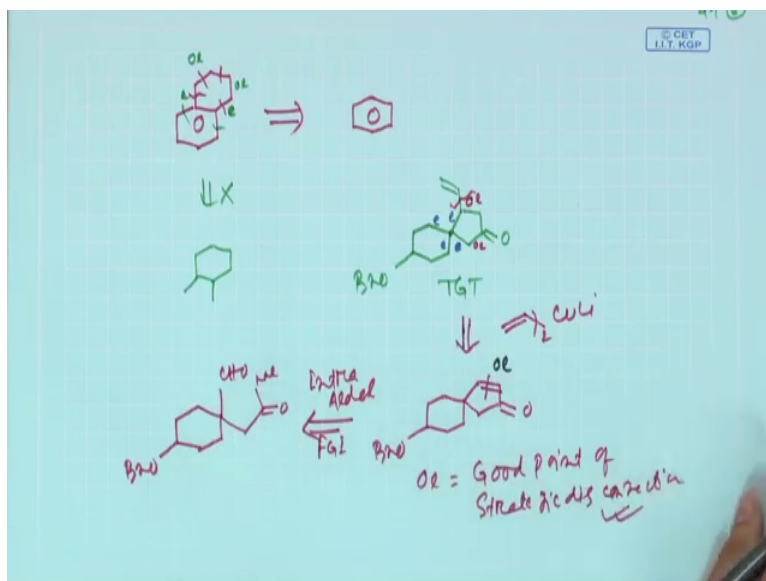 © CET
I.I.T. KGP
Ol
e
Ol
e
X
Ol
e
e
e
e
Ol
O
BnO
TGT
2
CuLi
CHO
Me
O
BnO
Intra
Aldol
FGI
Ol
O
BnO
Ol = Good point of
Strategic disconnection